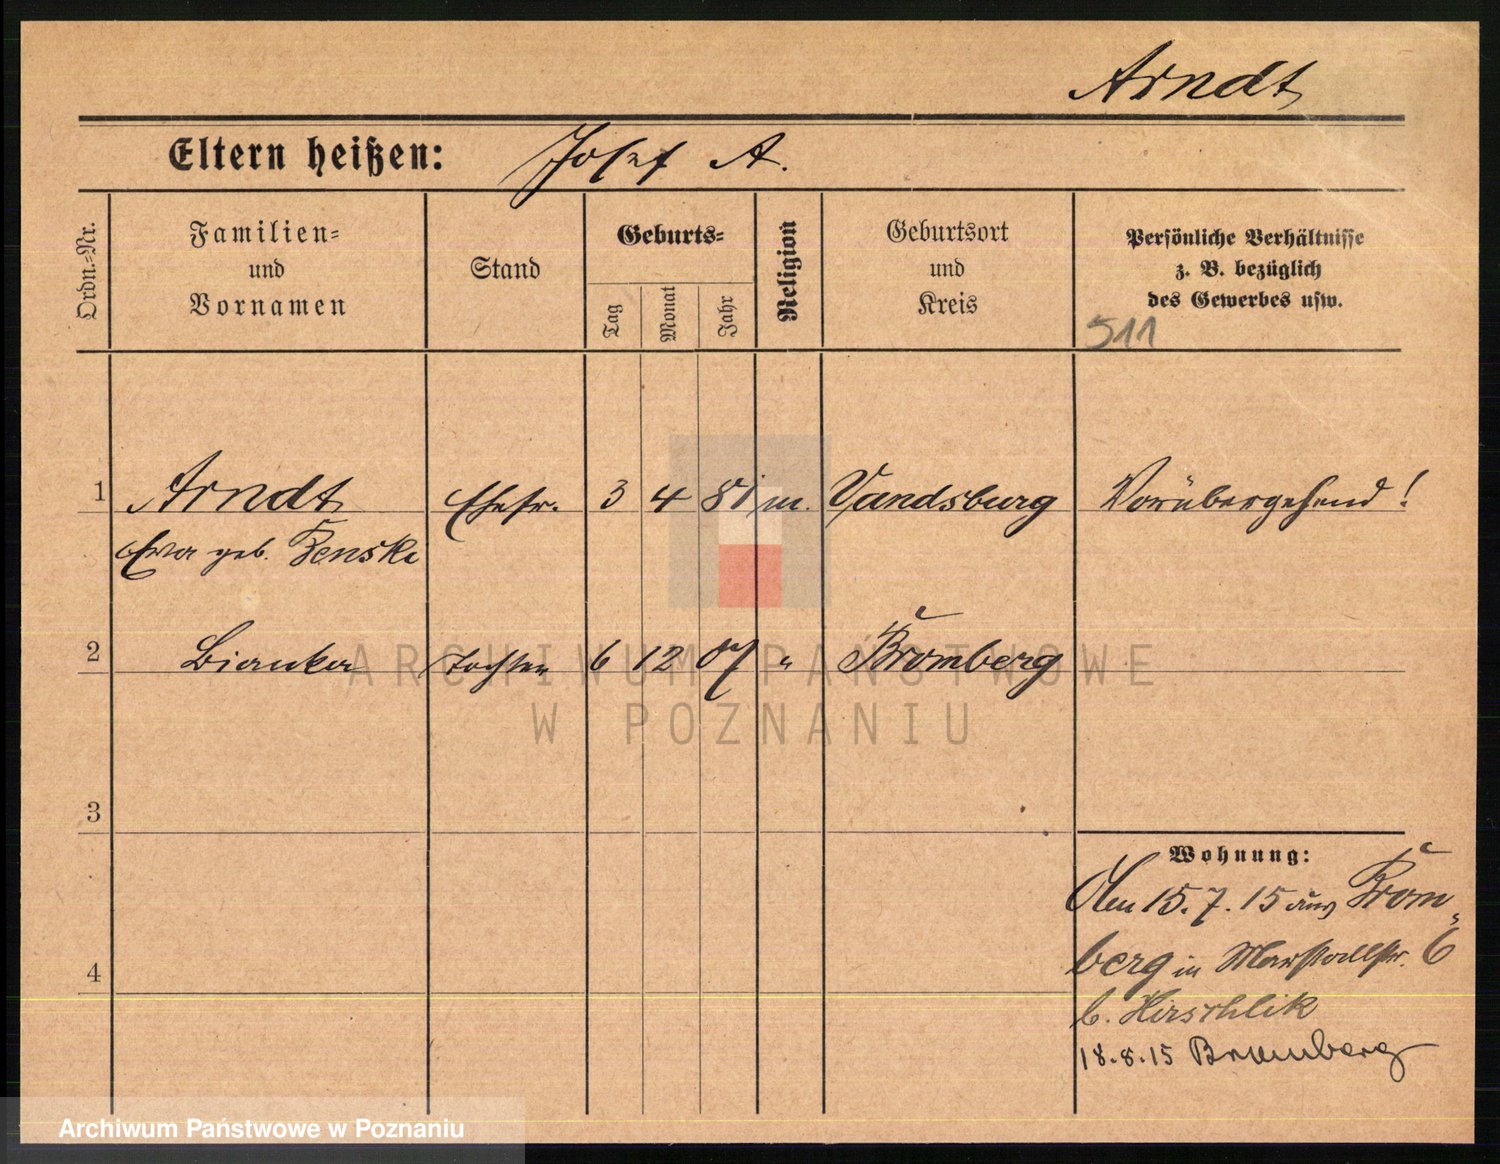 Arndt
Eltern heißen: Josef A.
Ordn.-Nr.
Familien- und Vornamen
Stand
Geburts-
Tag
Monat
Jahr
Religion
Geburtsort und Kreis
Persönliche Verhältnisse
z. B. bezüglich
des Gewerbes usw.
511
1 Arndt Ehefr. 3 4 81 m. Vandsburg Vorübergehend!
Ewa geb. Benske
2 Bianka Tochter 6 12 07 " Bromberg
3
4
Wohnung:
Am 15.7.15 aus Brom-
berg in Marstallstr. 6
b. Hirschlik
18.8.15 Bromberg
ARCHIWUM PAŃSTWOWE
W POZNANIU
Archiwum Państwowe w Poznaniu